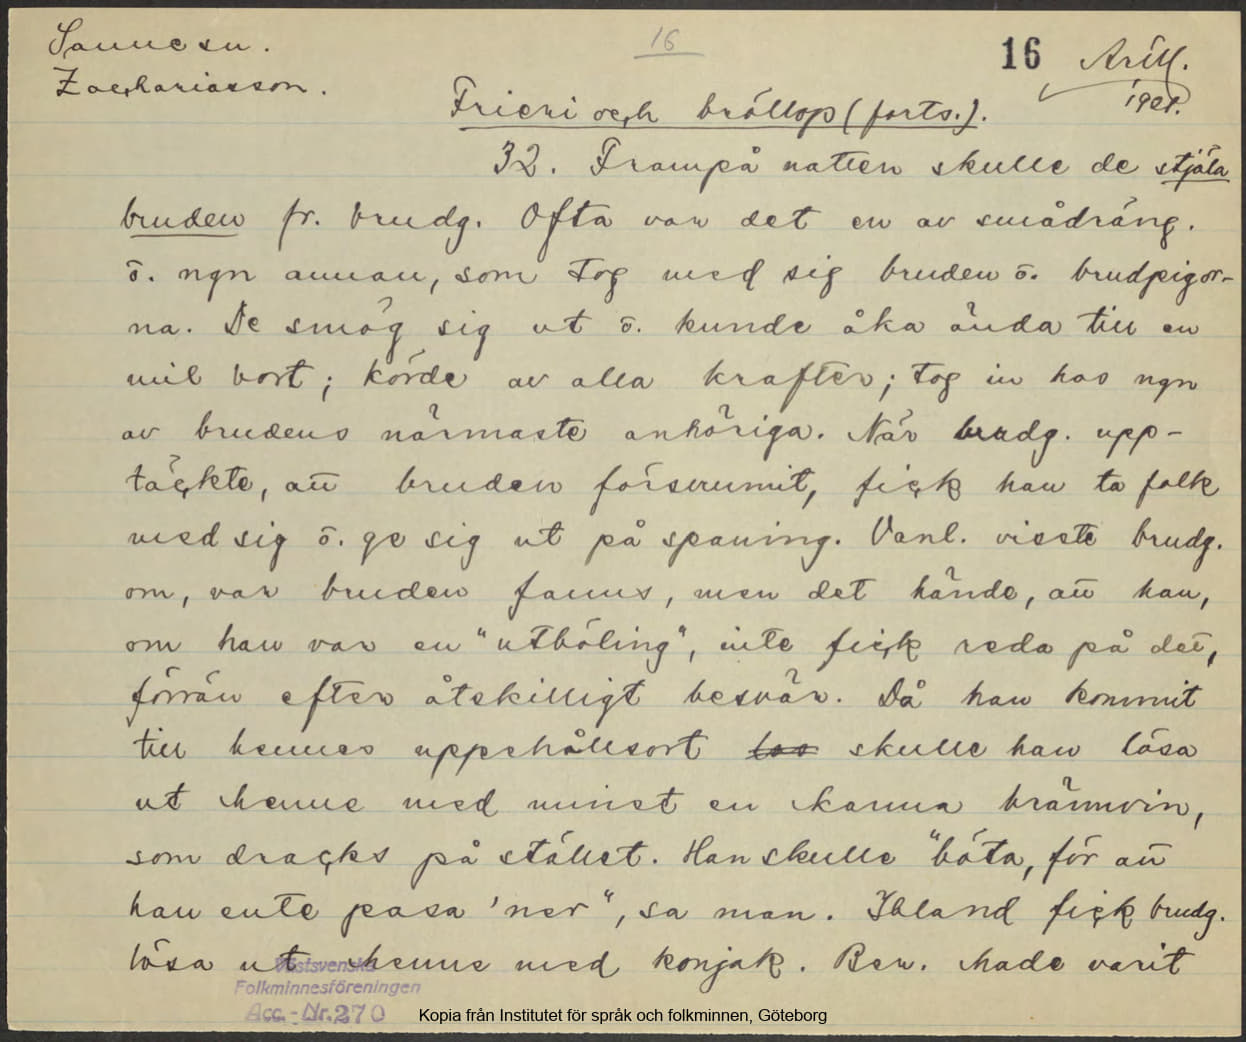 Sannesn.
16
16 ArM.
Zachariasson.
1921.
Frieri och bröllop (forts.).
32. Frampå natten skulle de stjäla
bruden fr. brudg. Ofta var det en av smådräng.
ō. ngn annan, som tog med sig bruden ō. brudpigor-
na. De smög sig ut ō. kunde åka ända till en
mil bort; körde av alla krafter; tog in hos ngn
av brudens närmaste anhöriga. När brudg. upp-
täckte, att bruden försvunnit, fick han ta folk
med sig ō. ge sig ut på spaning. Vanl. visste brudg.
om, var bruden fanns, men det hände, att han,
om han var en "utböling", inte fick reda på det,
förrän efter åtskilligt besvär. Då han kommit
till hennes uppehållsort skulle han lösa
ut henne med minst en kanna brännvin,
som dracks på stället. Han skulle "böta, för att
han ente pasa 'ner", sa man. Ibland fick brudg.
lösa ut henne med konjak. Ber. hade varit
Västsvenska
Folkminnesföreningen
Acc.-Nr. 270
Kopia från Institutet för språk och folkminnen, Göteborg